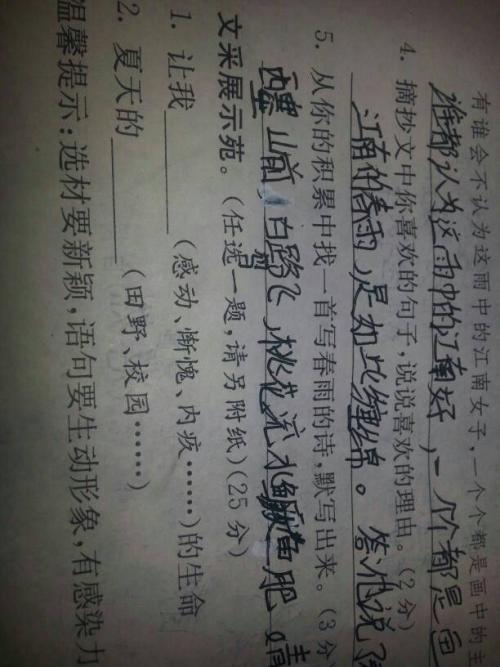 有谁会不认为这雨中的江南女子,一个个都是画中的主
谁都认为这雨中的江南好,一个都是画
4. 摘抄文中你喜欢的句子,说说喜欢的理由。(2分)
江南的春雨,是如此缠绵。答:他说了
5. 从你的积累中找一首写春雨的诗,默写出来。(3分
西塞山前白鹭飞,桃花流水鳜鱼肥
文采展示苑。(任选一题,请另附纸)(25分)
1. 让我______(感动、惭愧、内疚……)的生命
2. 夏天的______(田野、校园……)
温馨提示:选材要新颖,语句要生动形象,有感染力